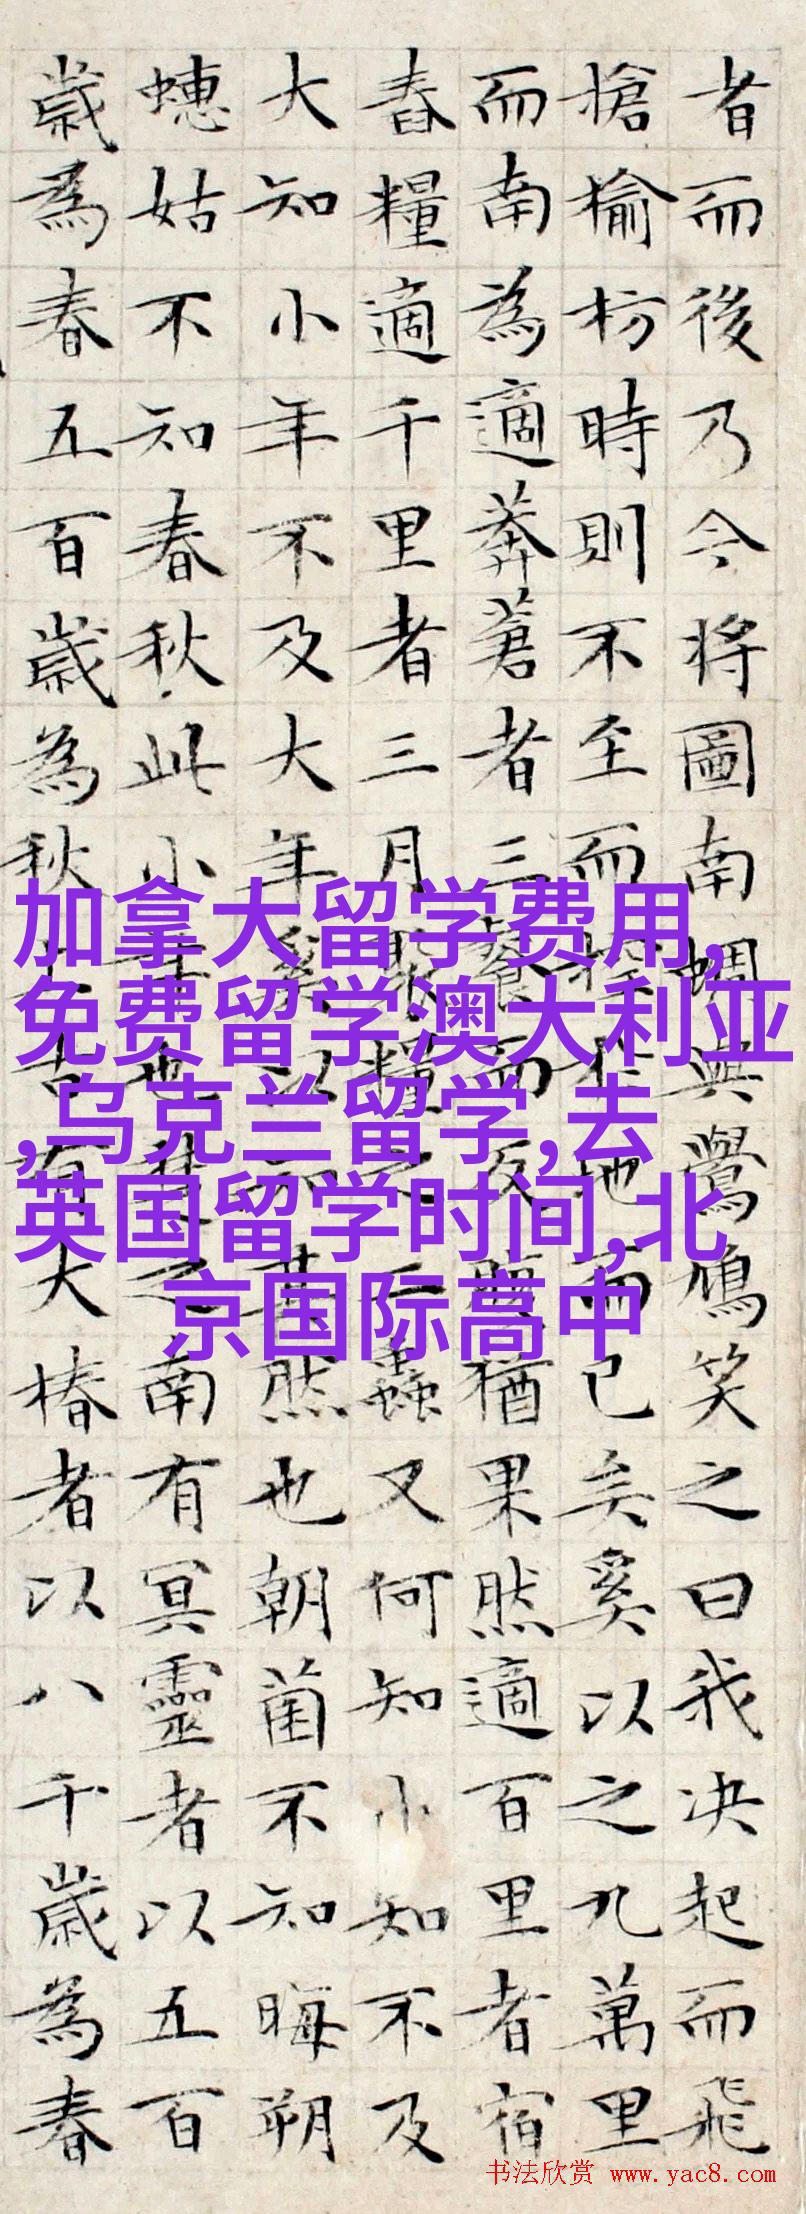 者而後乃今将圖南蜩與鷽鳩笑之曰我决起而飛
搶榆枋時則不至而控於地而已矣奚以之九萬里
而南為適莽蒼者三餐而反腹猶果然適百里者宿
舂糧適千里者三月聚糧之二蟲又何知小知不及
大知小年不及大年奚以知其然也朝菌不知晦朔
蟪姑不知春秋此小年也楚之南有冥靈者以五百
歲為春五百歲為秋上古有大椿者以八千歲為春
加拿大留学费用,
免费留学澳大利亚
,乌克兰留学,去
英国留学时间,北
京国际高中
书法欣赏 www.yac8.com